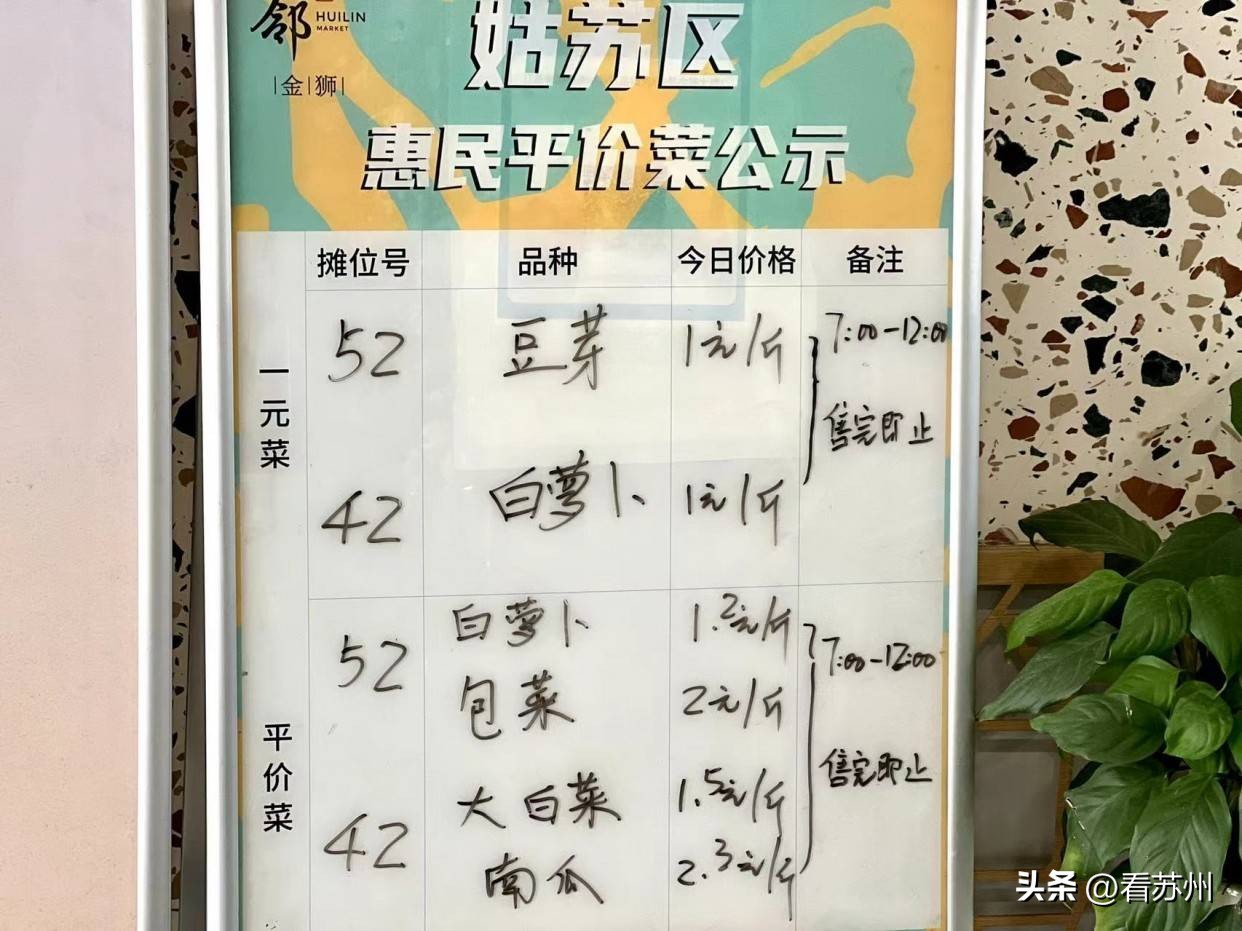 邻 HUILIN
MARKET
金狮
姑苏区
惠民平价菜公示
摊位号 品种 今日价格 备注
一元菜
52 豆芽 1元/斤 7:00-12:00
售完即止
42 白萝卜 1元/斤
平价菜
52 白萝卜 1.2元/斤 7:00-12:00
包菜 2元/斤
售完即止
42 大白菜 1.5元/斤
南瓜 2.3元/斤
头条 @看苏州